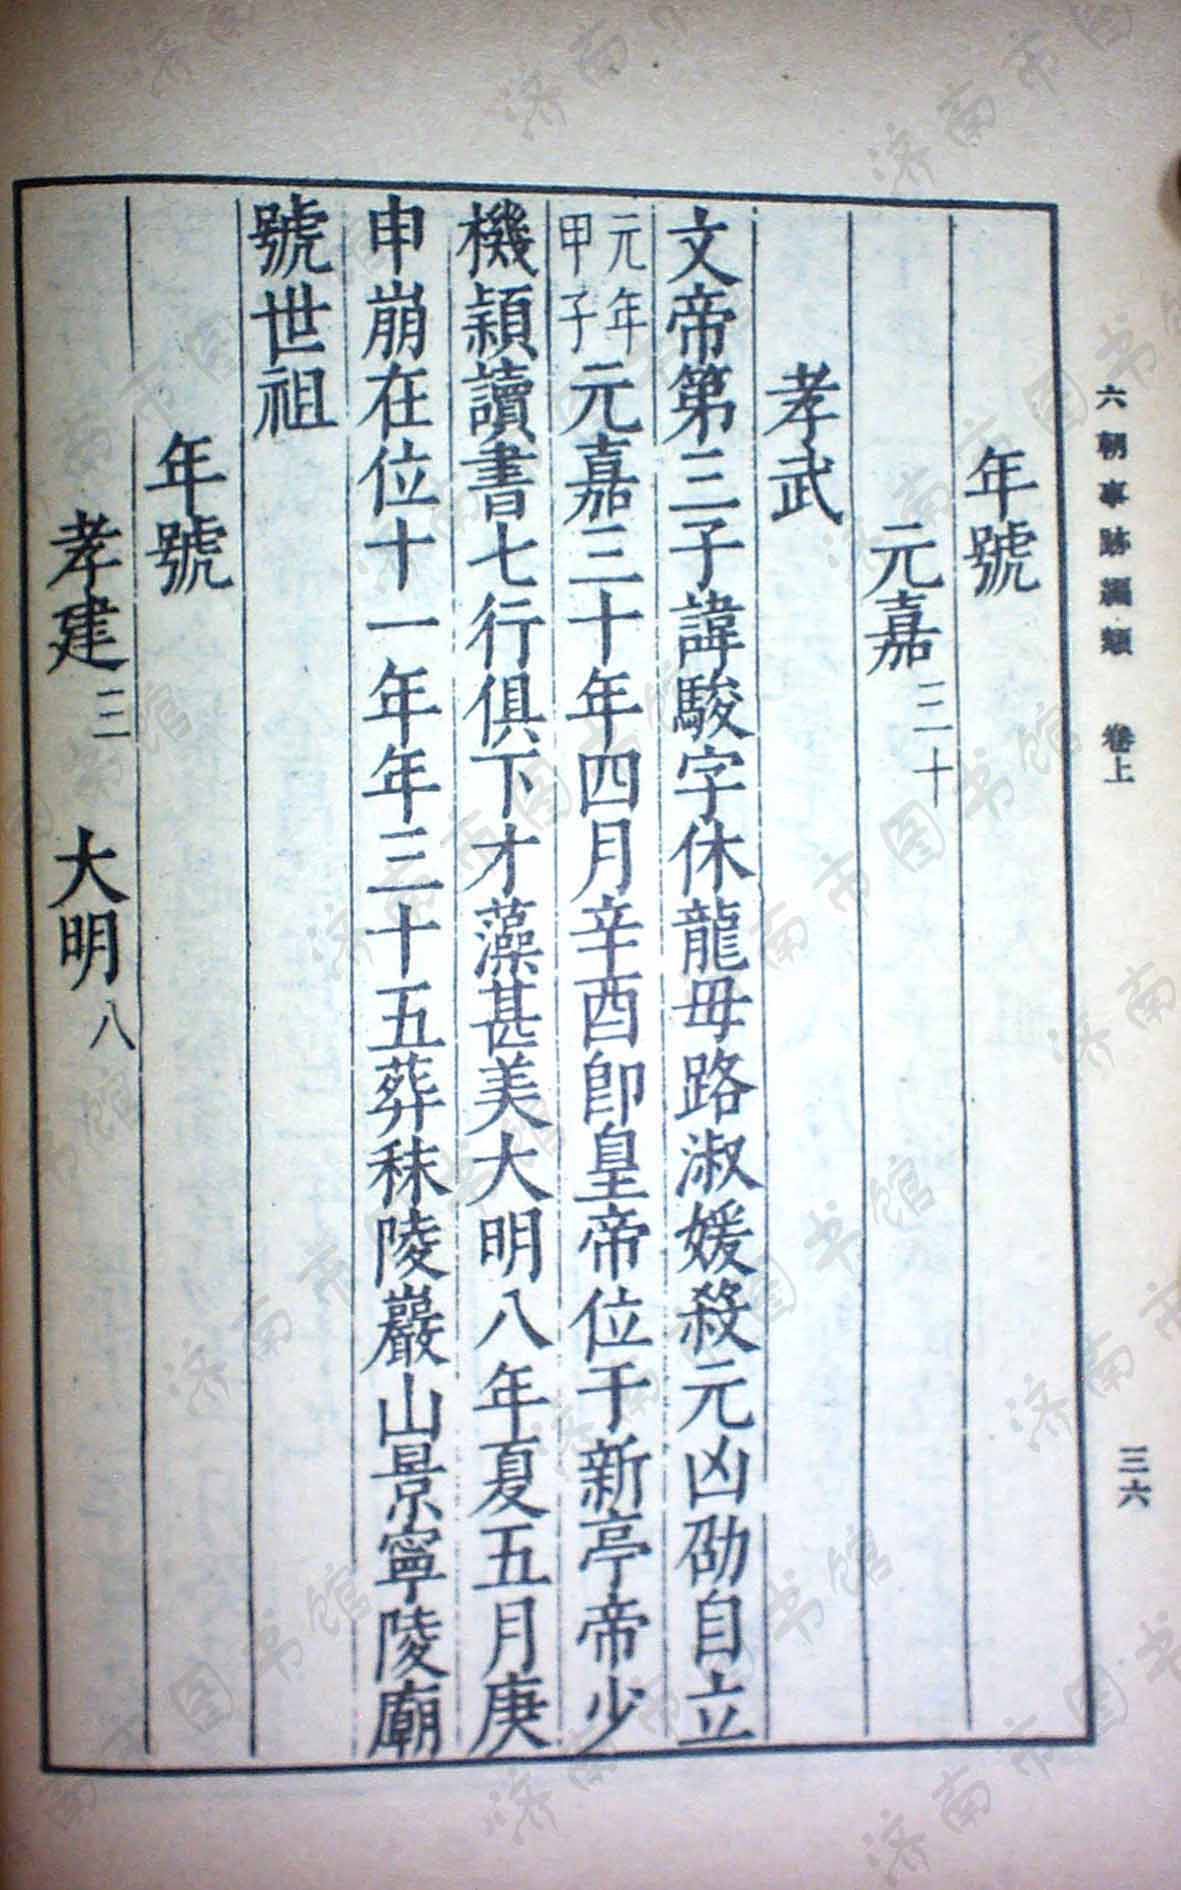 六朝事跡編類 卷上
三六
年號
元嘉三十
孝武
文帝第三子諱駿字休龍母路淑媛殺元凶劭自立
元年甲子元嘉三十年四月辛酉卽皇帝位于新亭帝少
機穎讀書七行俱下才藻甚美大明八年夏五月庚
申崩在位十一年年三十五葬秣陵巖山景寧陵廟
號世祖
年號
孝建三 大明八
济南市图书馆